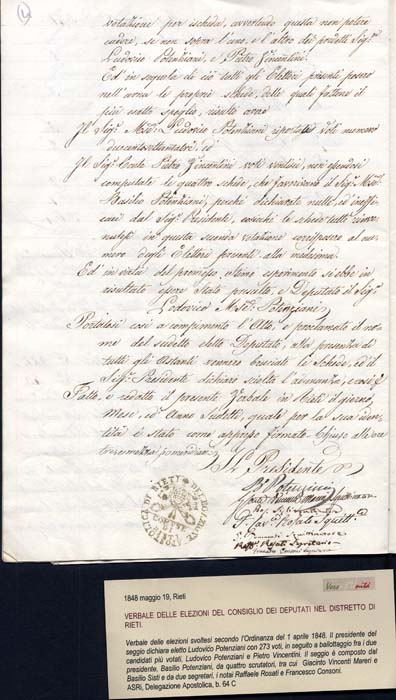 votazione per ischede, avvertendo questa non potere
cadere, se non sopra l'uno, e l'altro dei predetti Sigri
Ludovico Potenziani, e Pietro Vincentini.
Ed in seguela di ciò tutti gli Elettori presenti posero
nell'urna le proprie schede, delle quali fattone il
più esatto spoglio, risultò avere
Il Sigr Mse Ludovico Potenziani riportati Voti numero
duecentosettantatre, ed
Il Sigr Conte Pietro Vincentini voti ventisei, non essendosi
computate le quattro schede, che favorivano il Sigr Mse
Basilio Potenziani, perché dichiarate nulle, ed ineffi-
caci dal Sigr Presidente, cosicché le schede tutte rinve-
nutesi in questa seconda votazione corrisposero al nu-
mero degli Elettori presenti alla medesima.
Ed in virtù del premesso ultimo esperimento si ebbe in
risultato essere Stato prescelto, a Deputato il Sigr
Ludovico Mse Potenziani
Portatosi così a compimento l'Atto, e proclamato il no-
me del suddetto Deputato, alla presenza di
tutti gli Astanti vennero bruciate le Schede, ed il
Sigr Presidente dichiarò sciolta l'adunanza, e così
Fatto, e redatto il presente Verbale in Rieti il giorno,
Mese, ed Anno Suddetti, quale per la sua iden-
tità è stato come appresso firmato. Chiuso alle ore
pomeridiane.
Il Presidente
DELEGAZIONE APOSTOLICA DI RIETI
1848 maggio 19, Rieti
VERBALE DELLE ELEZIONI DEL CONSIGLIO DEI DEPUTATI NEL DISTRETTO DI
RIETI.
Verbale delle elezioni svoltesi secondo l'Ordinanza del 1 aprile 1848. Il presidente del
seggio dichiara eletto Ludovico Potenziani con 273 voti, in seguito a ballottaggio fra i due
candidati più votati: Ludovico Potenziani e Pietro Vincentini. Il seggio è composto dal
presidente, Basilio Potenziani, da quattro scrutatori, tra cui Giacinto Vincenti Mareri e
Basilio Sisti e da due segretari, i notai Raffaele Rosati e Francesco Consoni.
ASRi, Delegazione Apostolica, b. 64 C